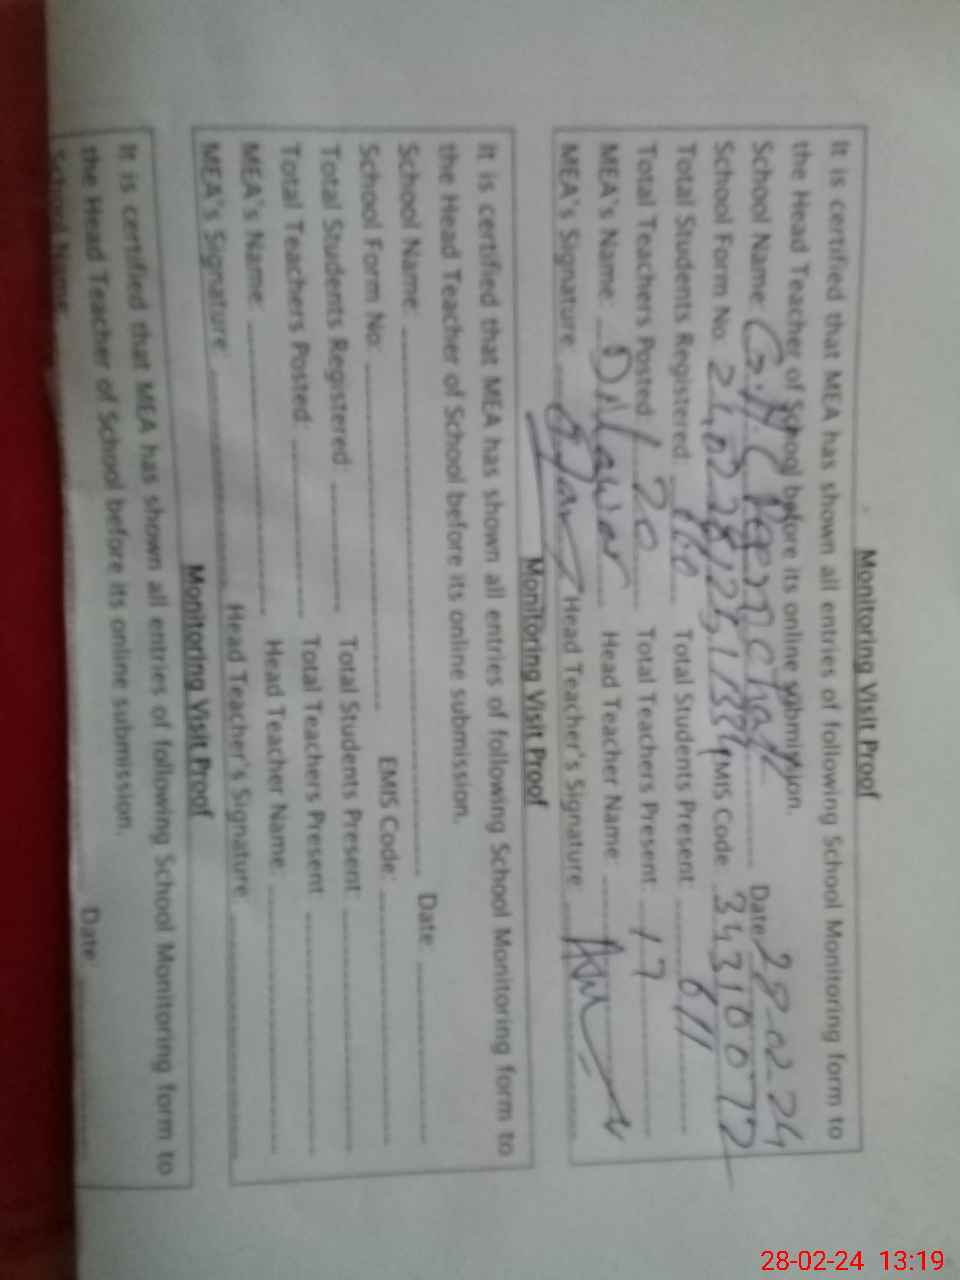 Monitoring Visit Proof
It is certified that MEA has shown all entries of following School Monitoring form to
the Head Teacher of School before its online submission.
School Name: Date: 28-02-24
School Form No: EMIS Code: 34310072
Total Students Registered: Total Students Present: 611
Total Teachers Posted: 20 Total Teachers Present: 17
MEA's Name: Dilawer Head Teacher Name:
MEA's Signature: Head Teacher's Signature:
Monitoring Visit Proof
It is certified that MEA has shown all entries of following School Monitoring form to
the Head Teacher of School before its online submission.
School Name: Date:
School Form No: EMIS Code:
Total Students Registered: Total Students Present:
Total Teachers Posted: Total Teachers Present:
MEA's Name: Head Teacher Name:
MEA's Signature: Head Teacher's Signature:
Monitoring Visit Proof
It is certified that MEA has shown all entries of following School Monitoring form to
the Head Teacher of School before its online submission.
School Name: Date:
28-02-24 13:19